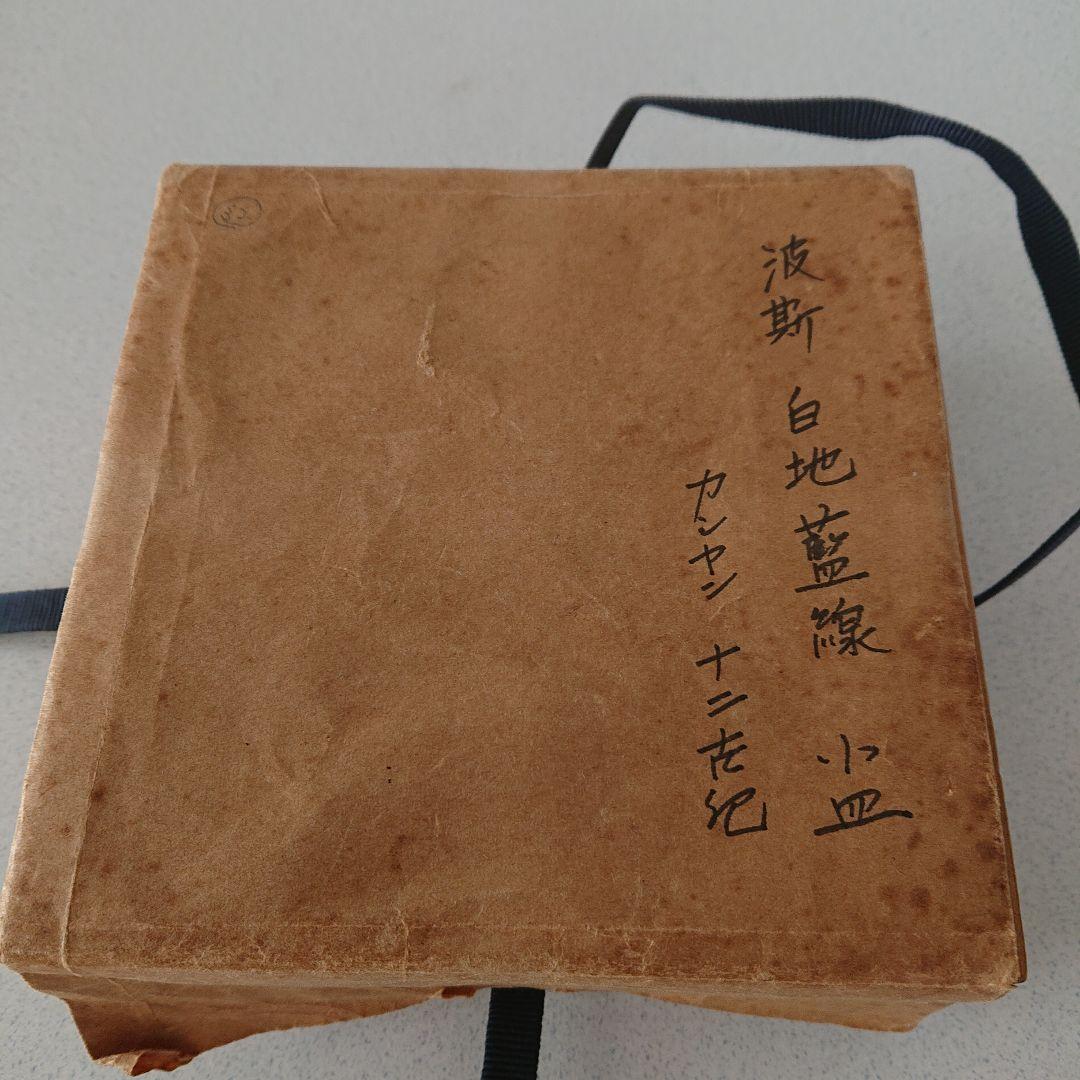 波斯 白地藍線 小皿
カンヤン 十二古紀